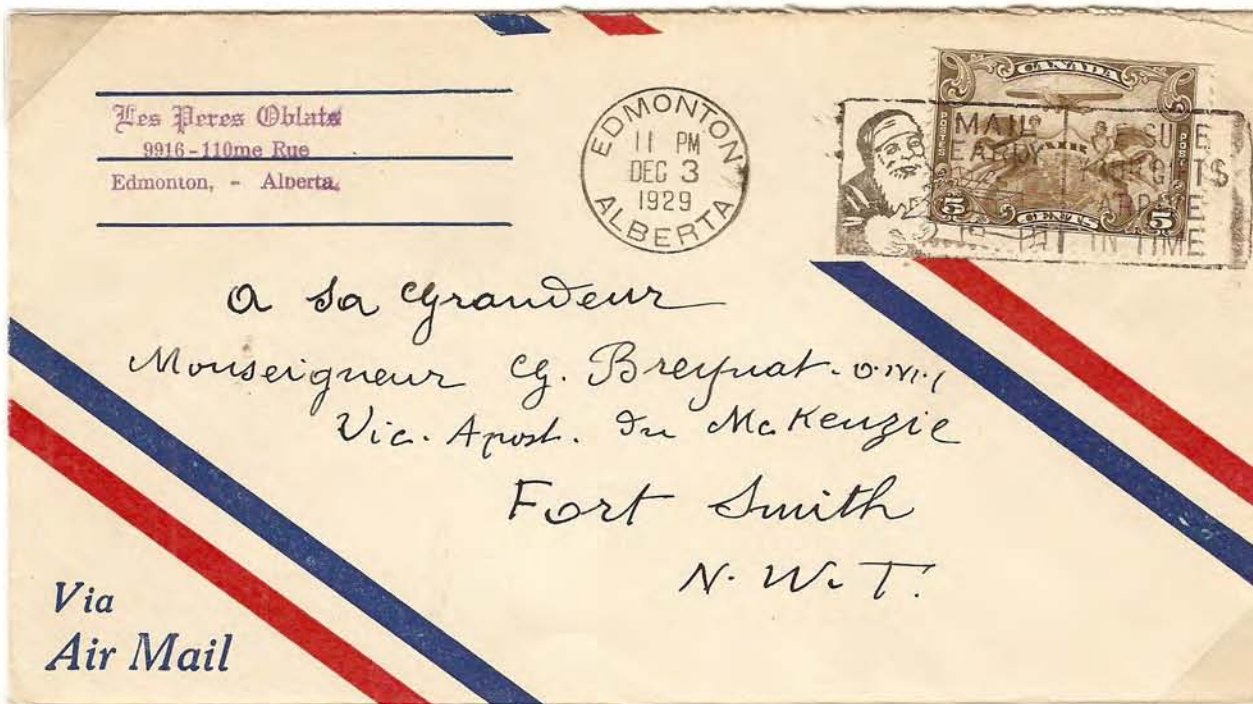 Les Peres Oblats
9916-110me Rue
Edmonton, - Alberta.
EDMONTON
11 PM
DEC 3
1929
ALBERTA
CANADA
POSTES
AIR
5 CENTS 5
MAIL
EARLY
GIFTS
IN TIME
a Sa Grandeur
Monseigneur G. Breynat. O.M.I
Vic. Apost. du McKenzie
Fort Smith
N. W. T.
Via
Air Mail